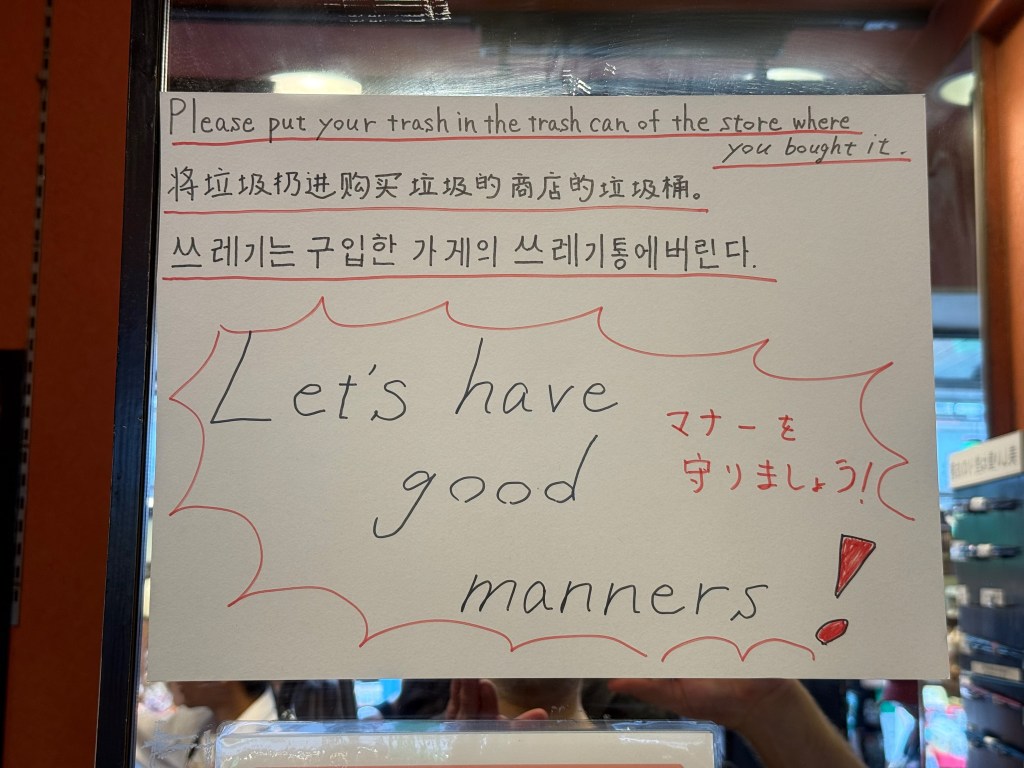 Please put your trash in the trash can of the store where
you bought it.
将垃圾扔进购买垃圾的商店的垃圾桶。
쓰레기는 구입한 가게의 쓰레기통에버린다.
Let's have
good
manners
マナーを
守りましょう!
!